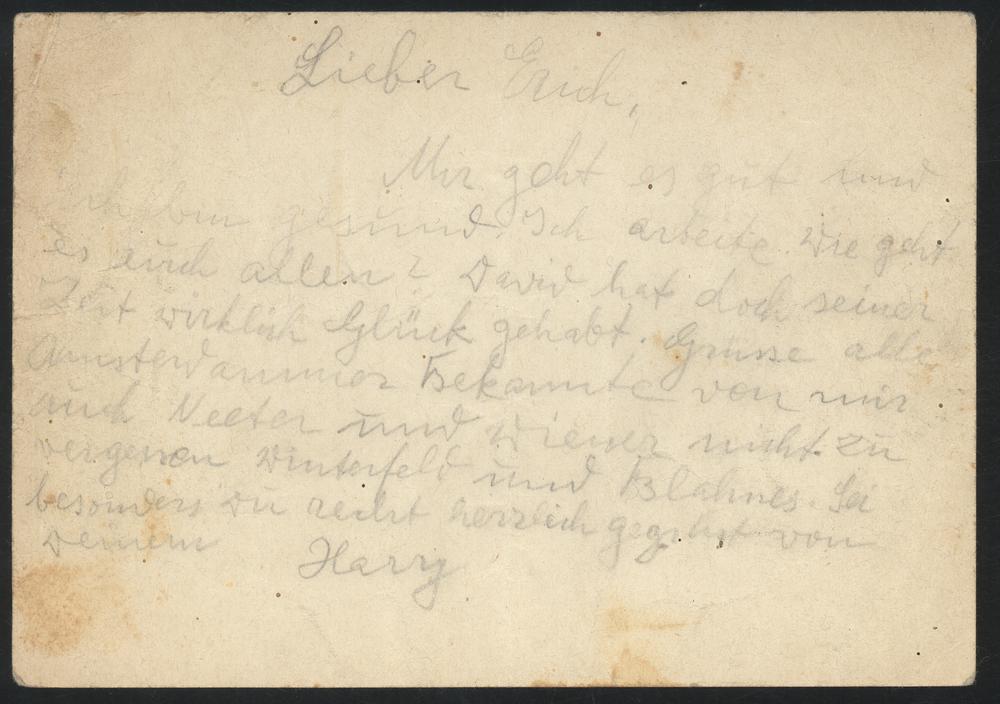 Lieber Erich,
Mir geht es gut und
ich bin gesund. Ich arbeite. Wie geht
es euch allen? David hat doch seiner
Zeit wirklich Glück gehabt. Grüsse alle
Amsterdammer Bekannte von mir
auch Neeter und Wiener nicht zu
vergessen Winterfeld und Blahnes. Sei
besonders Du recht herzlich gegrüsst von
Deinem
Harry